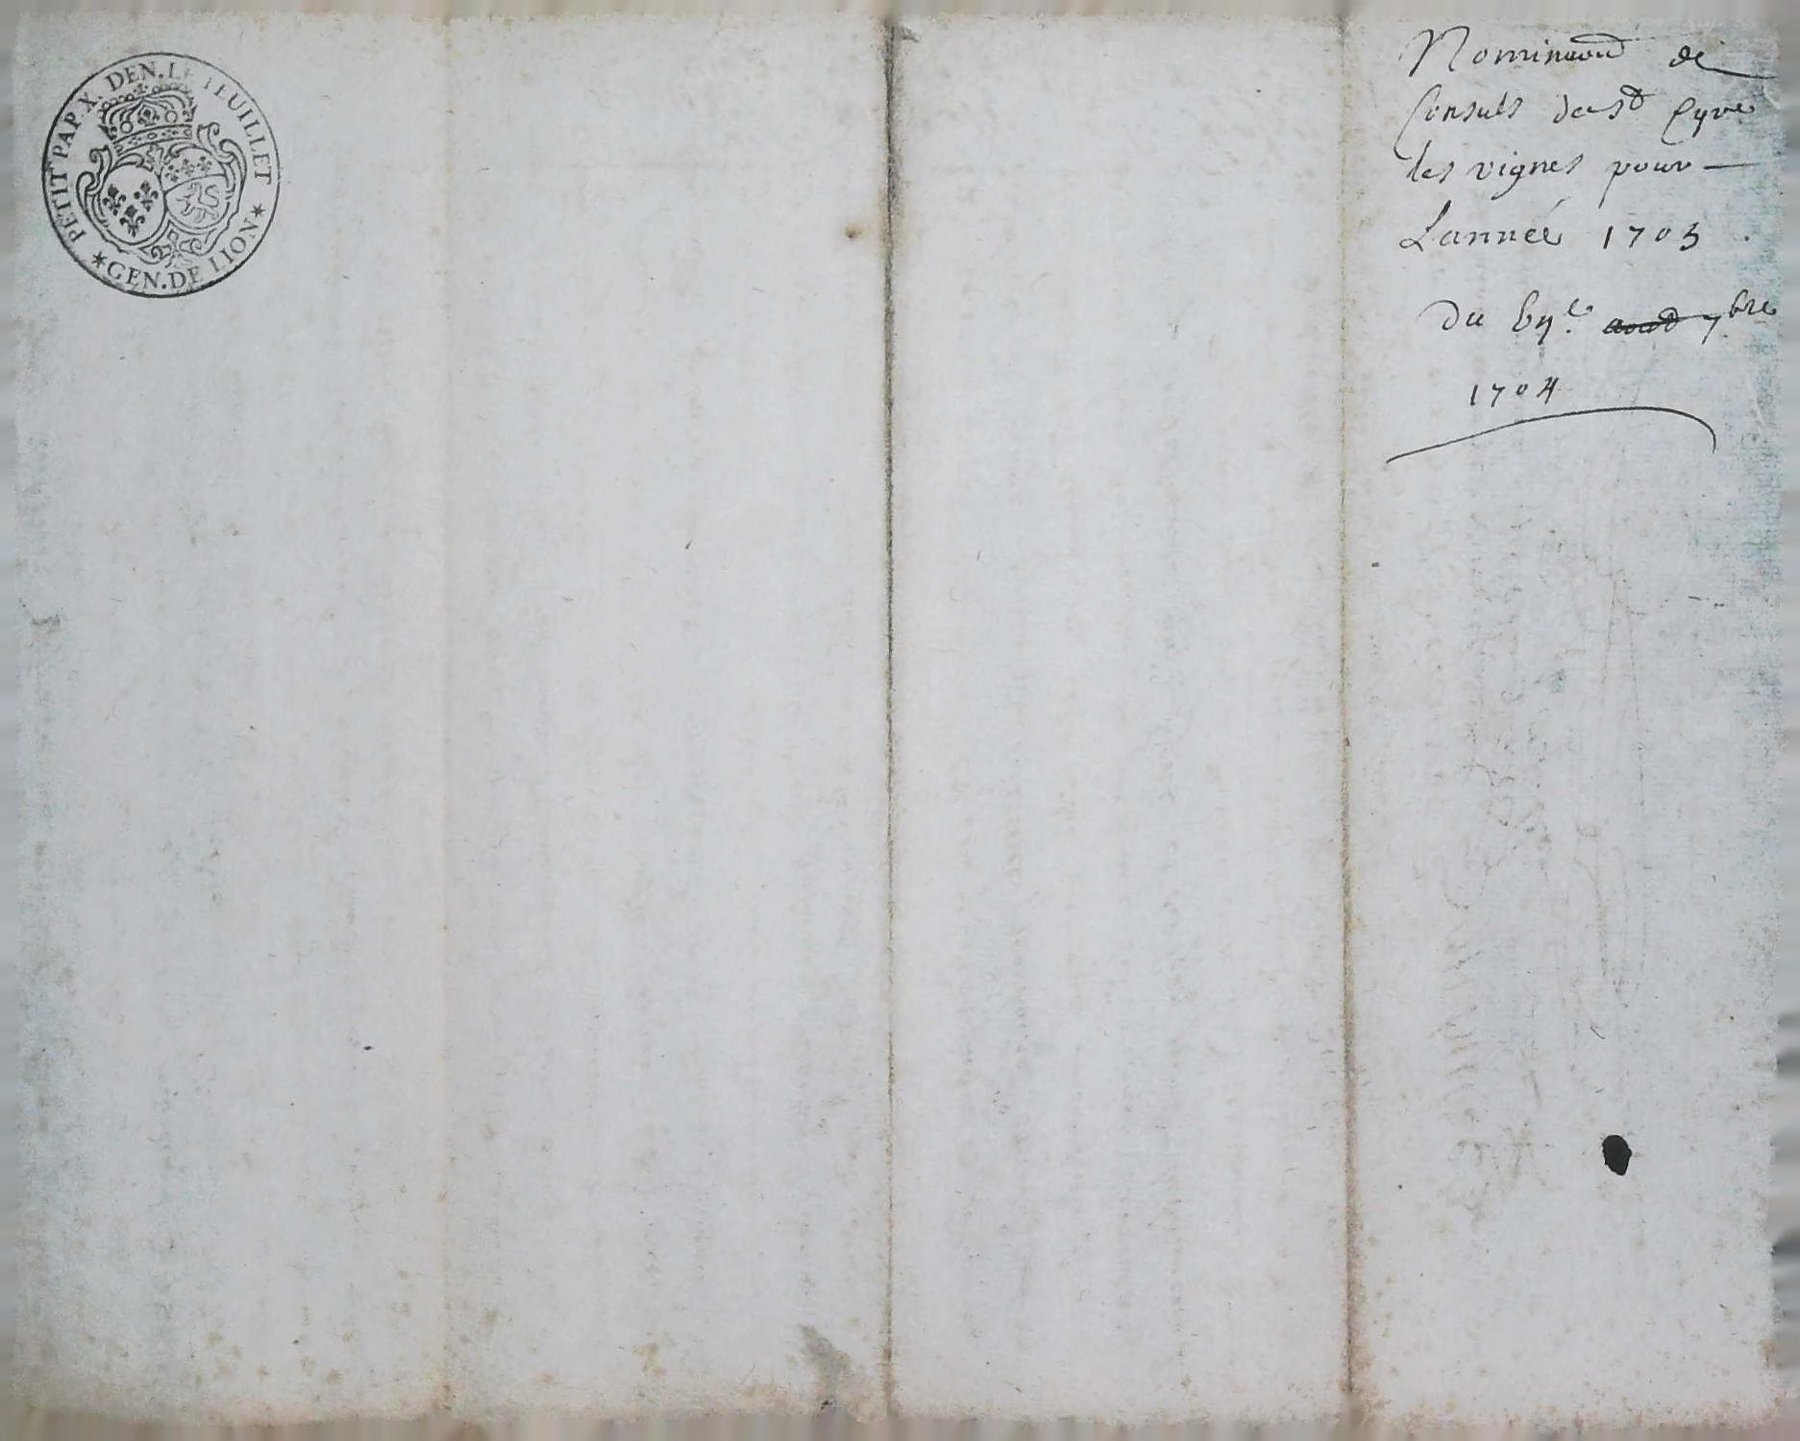 PETIT PAP. X. DEN. LE FEUILLET
* GEN. DE LION *
Nominaõn de
Consuls de St Cyre
les vignes pour —
Lannéé 1705
du aoust 7bre
1704